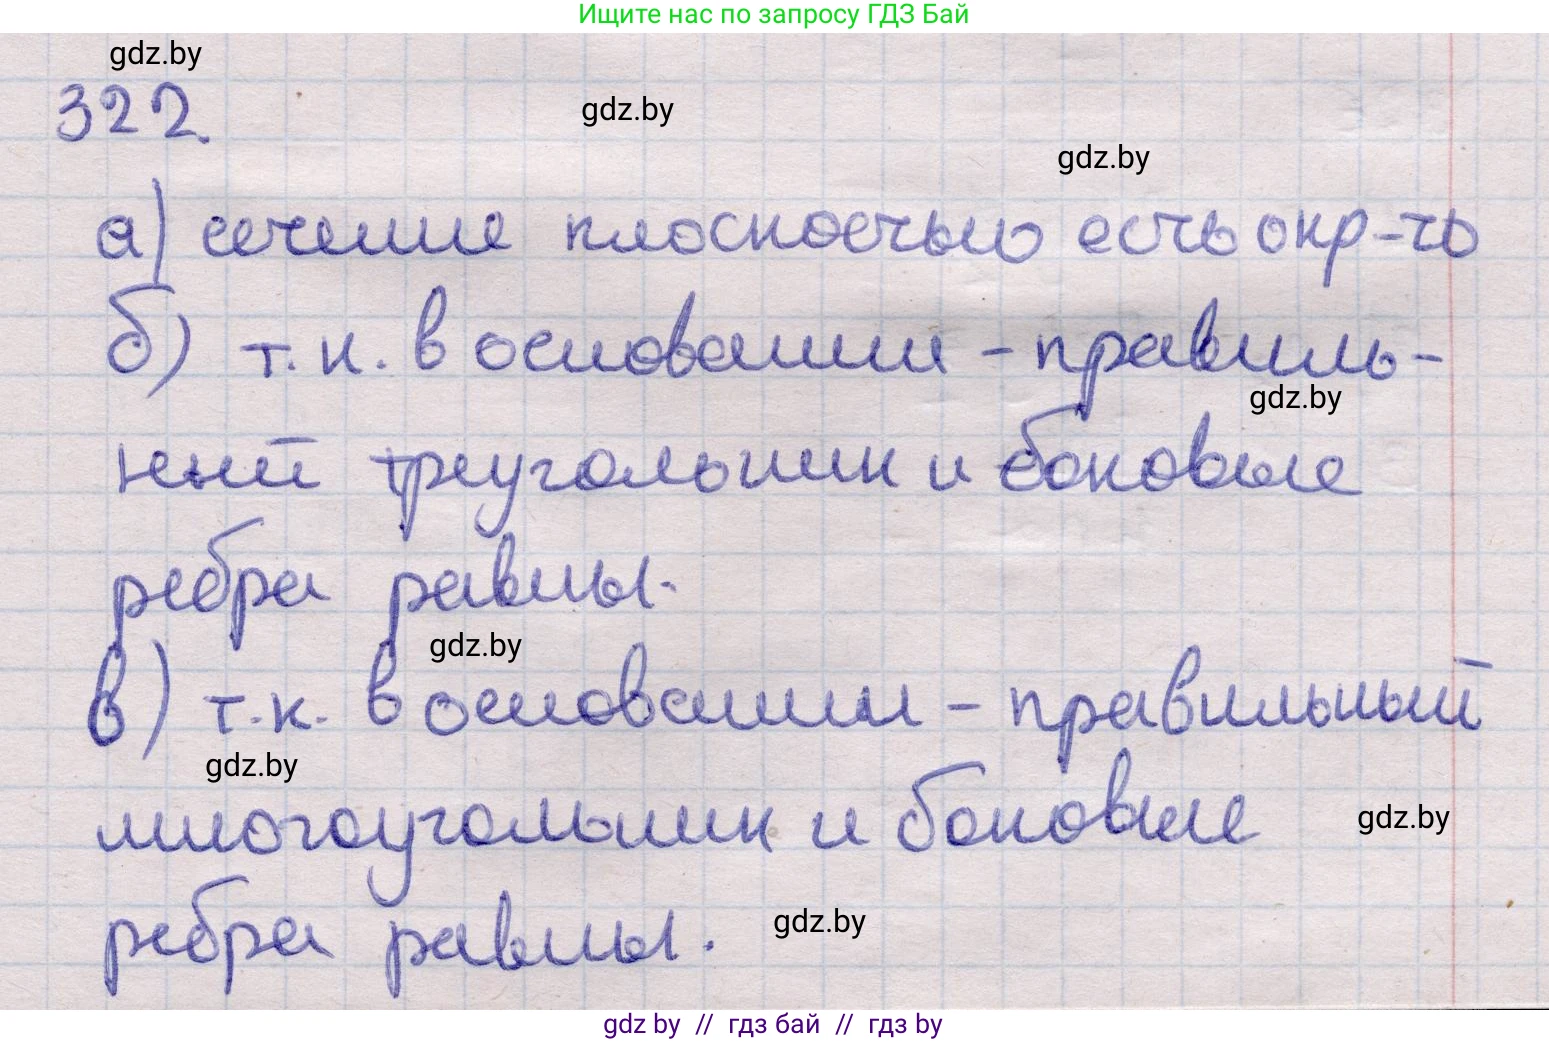 Ищите нас по запросу ГДЗ Бай
gdz.by
322.
gdz.by
gdz.by
а) сечение плоскостью есть окр-ть
б) т.к. в основании - правиль-
gdz.by
ный треугольник и боковые
ребра равны.
gdz.by
в) т.к. в основании - правильный
gdz.by
многоугольник и боковые
gdz.by
ребра равны.
gdz.by
gdz by // гдз бай // гдз by